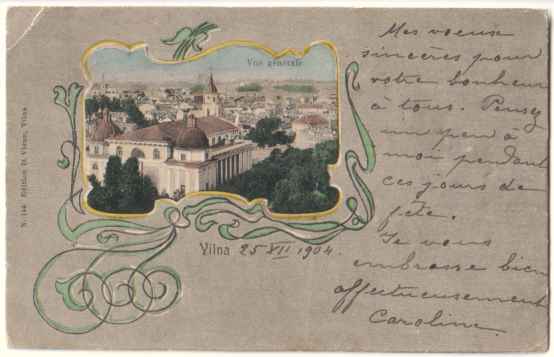 Vue générale
N. 146 Edition D. Visun, Vilna
Vilna 25 XII 1904.
Mes voeux
sincères pour
votre bonheur
à tous. Pensez
un peu à
moi pendant
ces jours de
fête.
Je vous
embrasse bien
affectueusement
Caroline